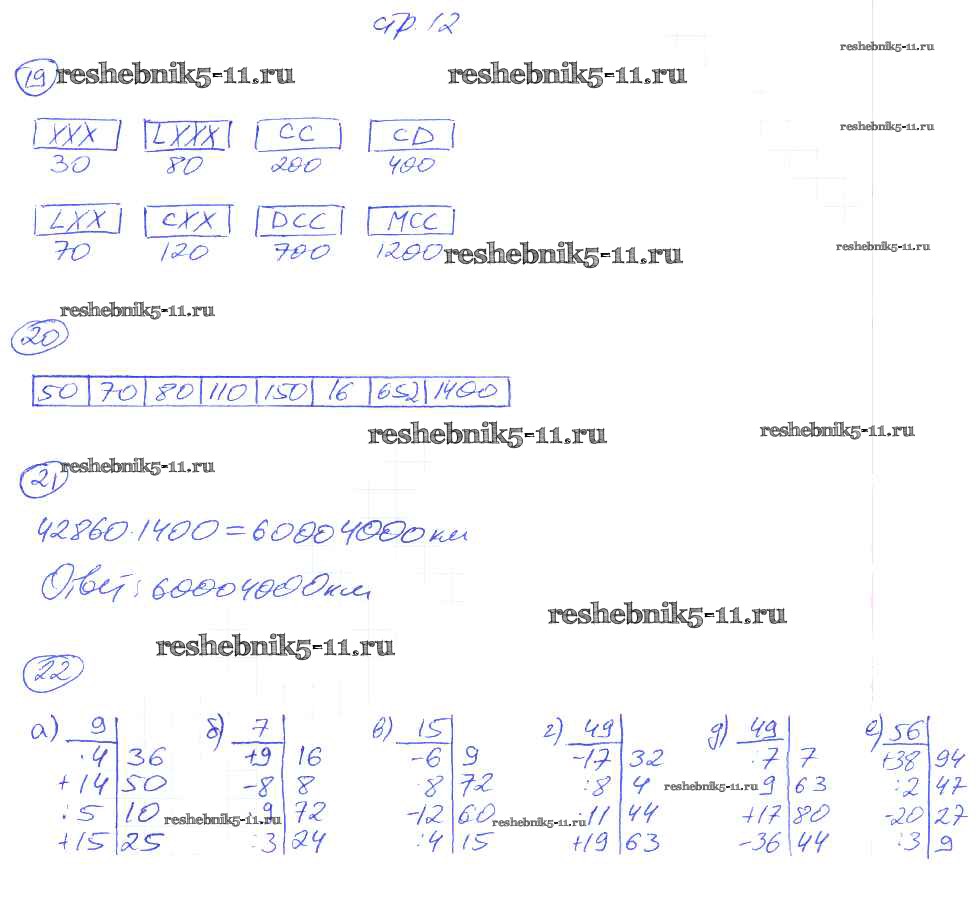 стр. 12
19 reshebnik5-11.ru reshebnik5-11.ru reshebnik5-11.ru
XXX LXXX CC CD reshebnik5-11.ru
30 80 200 400
LXX CXX DCC MCC
70 120 700 1200 reshebnik5-11.ru reshebnik5-11.ru
reshebnik5-11.ru
20
50 70 80 110 150 16 652 1400
reshebnik5-11.ru reshebnik5-11.ru
21 reshebnik5-11.ru
42860·1400=60004000км
Ответ: 60004000км
reshebnik5-11.ru
reshebnik5-11.ru
22
а) 9 б) 7 в) 15 г) 49 д) 49 е) 56
·4 36 +9 16 -6 9 -17 32 :7 7 +38 94
+14 50 -8 8 ·8 72 :8 4 reshebnik5-11.ru ·9 63 :2 47
:5 10 reshebnik5-11.ru ·9 72 -12 60 reshebnik5-11.ru ·11 44 +17 80 -20 27
+15 25 :3 24 :4 15 +19 63 -36 44 :3 9